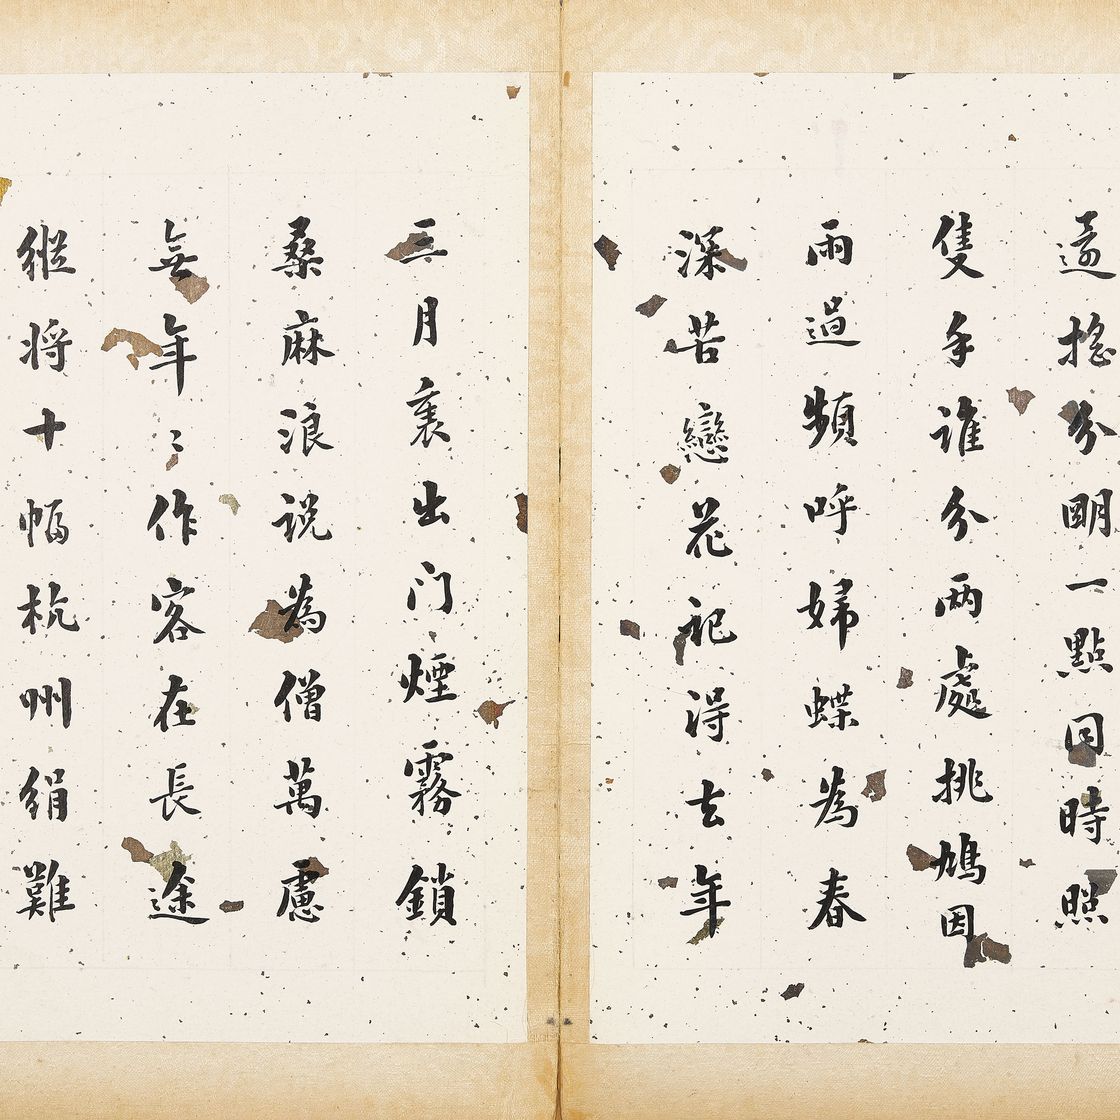 遠搖分明一點同時照
隻手誰分兩處挑鳩因
雨過頻呼婦蝶為春
深苦戀花記得去年
三月裏出門煙霧鎖
桑麻浪説為僧萬慮
無年〻作客在長途
縱將十幅杭州絹難